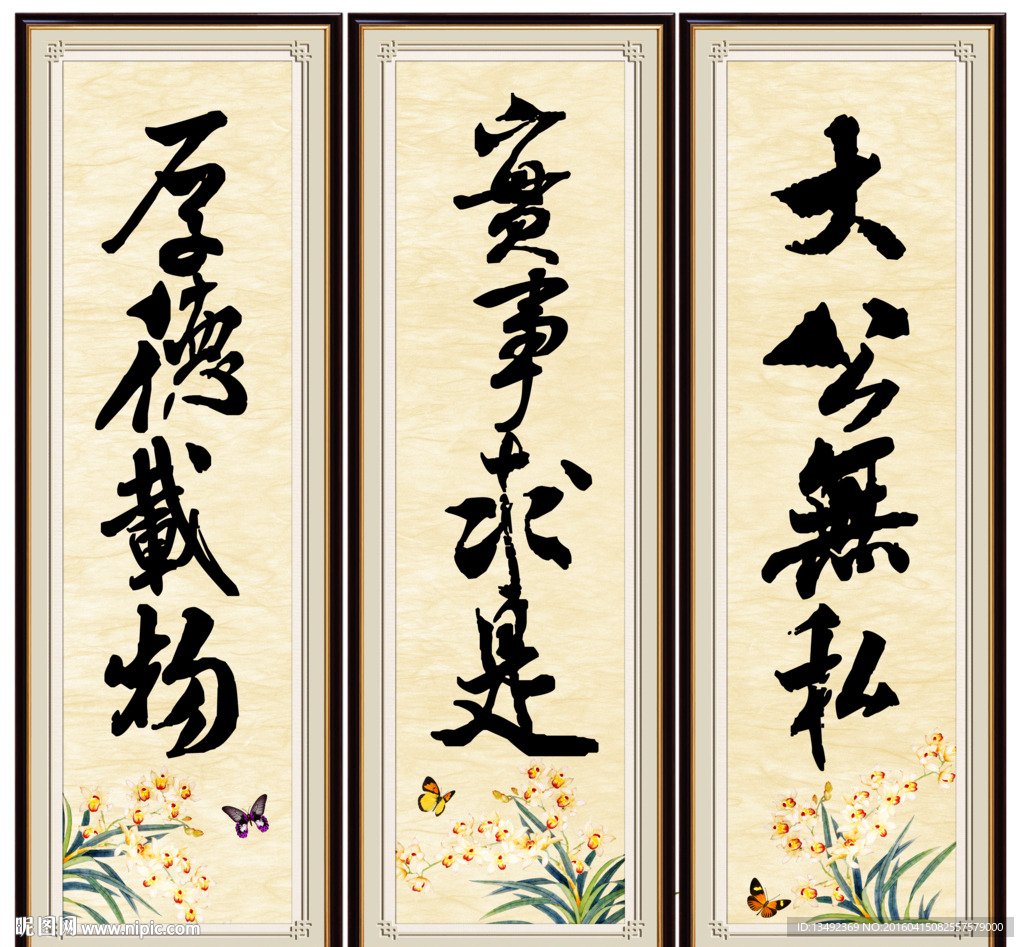 厚德載物
實事求是
大公無私
昵图网 www.nipic.com
ID:13492369 NO:20160415082557579000